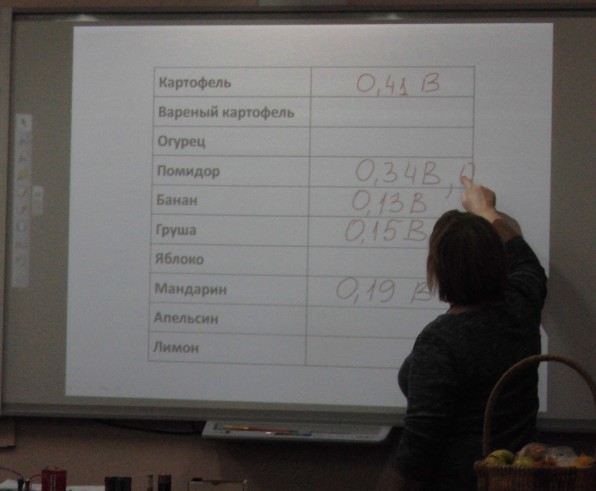 Картофель 0,41 В
Вареный картофель
Огурец
Помидор 0,34В, 0
Банан 0,13В
Груша 0,15В
Яблоко
Мандарин 0,19 В
Апельсин
Лимон